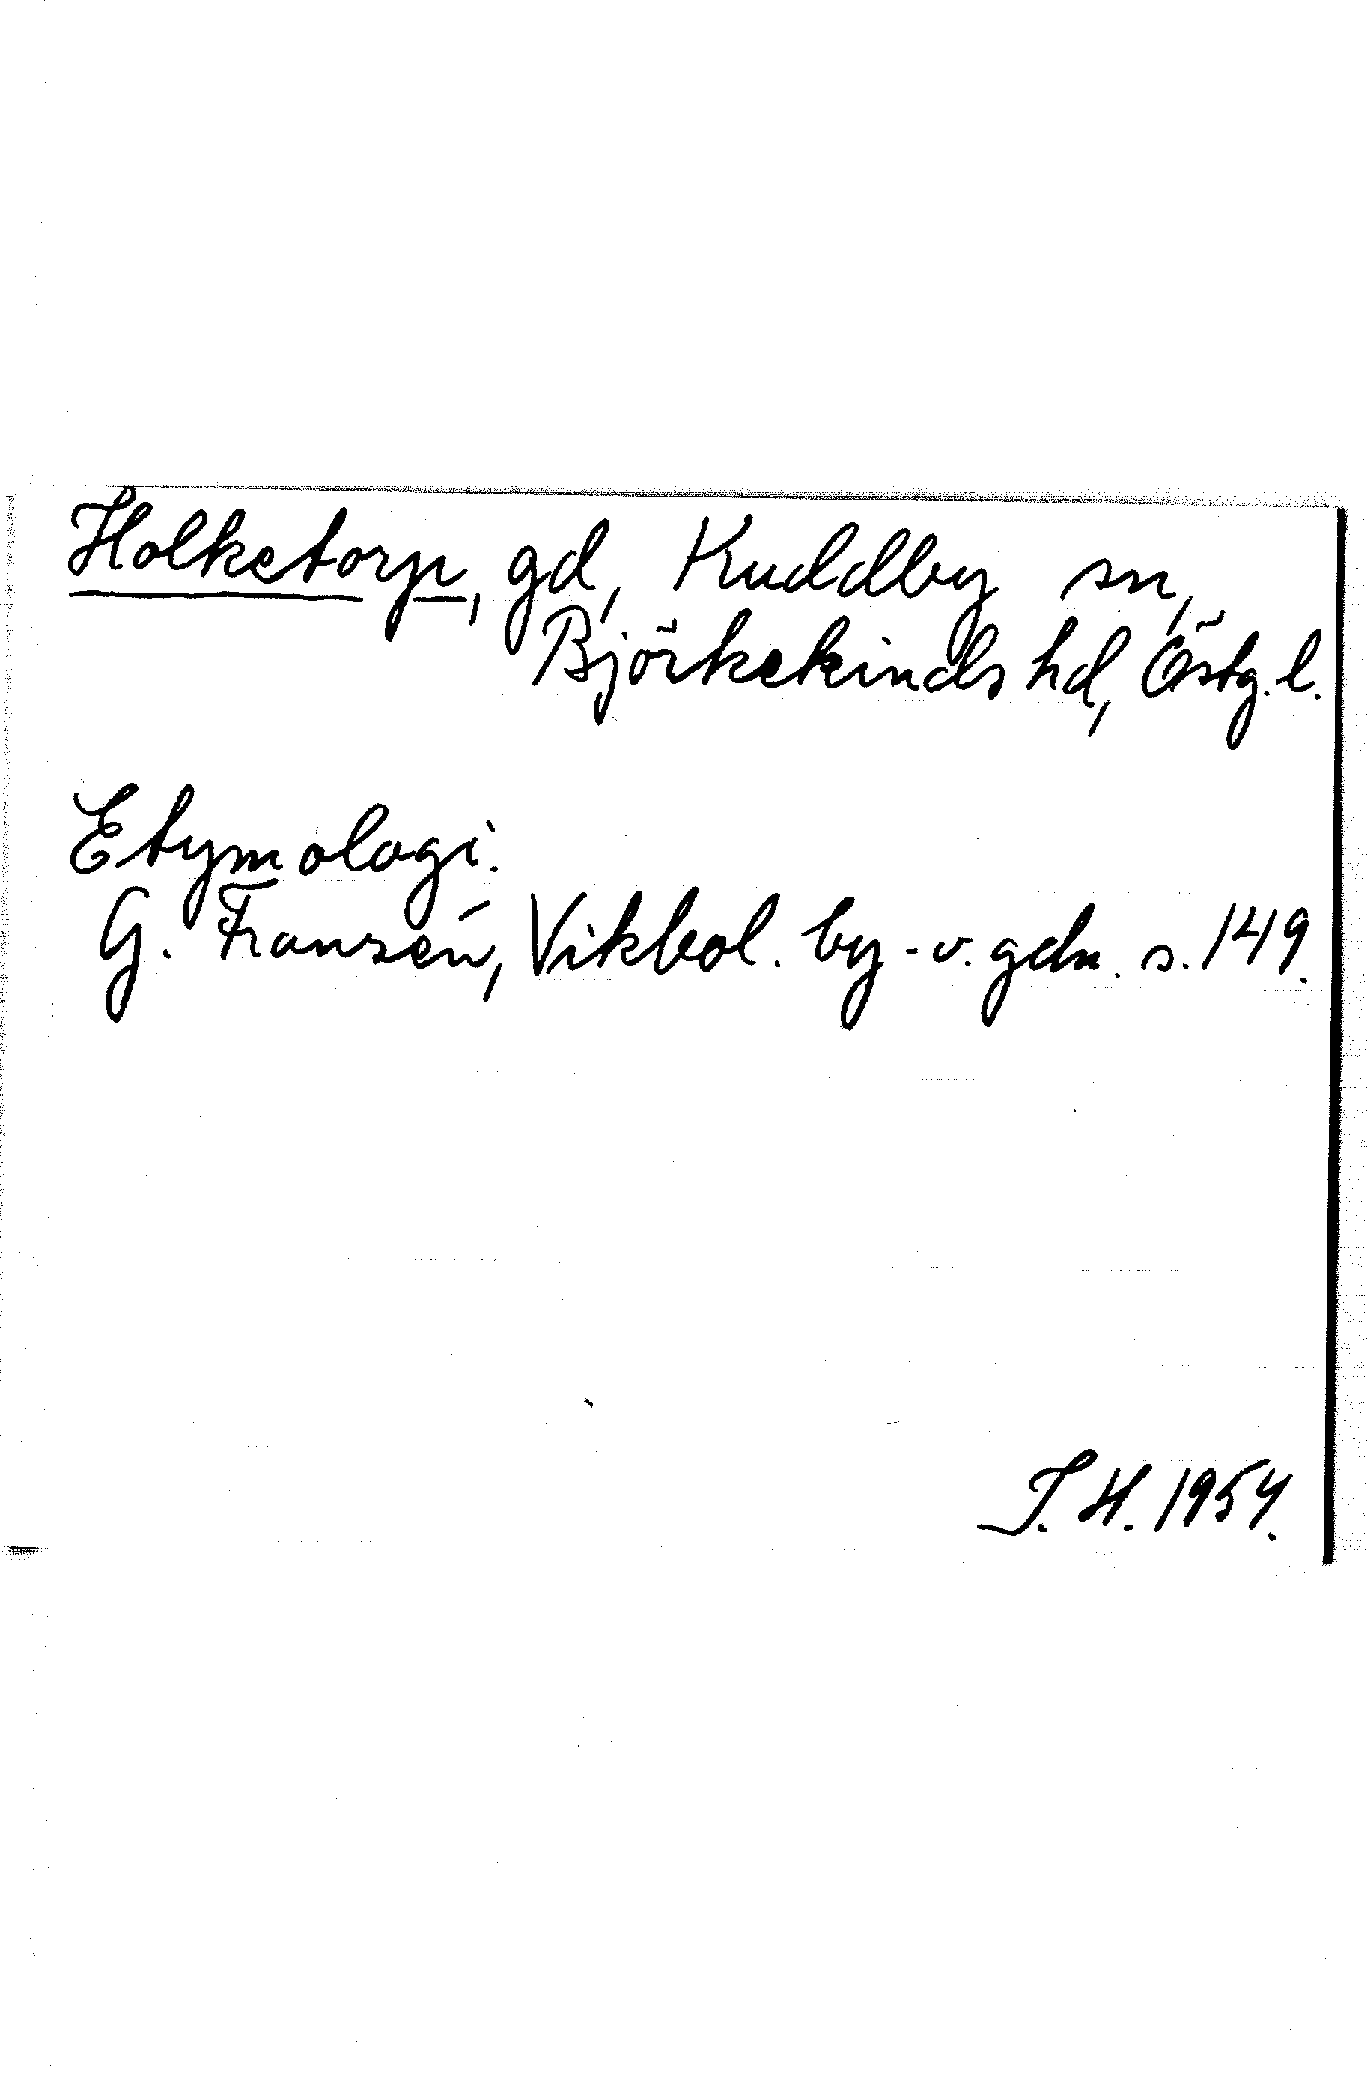 Holketorp, gd, Kuddby sn,
Björkekinds hd, Östg. l.
Etymologi.
G. Franzén, Vikbol. by- o. gdn. s. 149.
T. H. 1954.